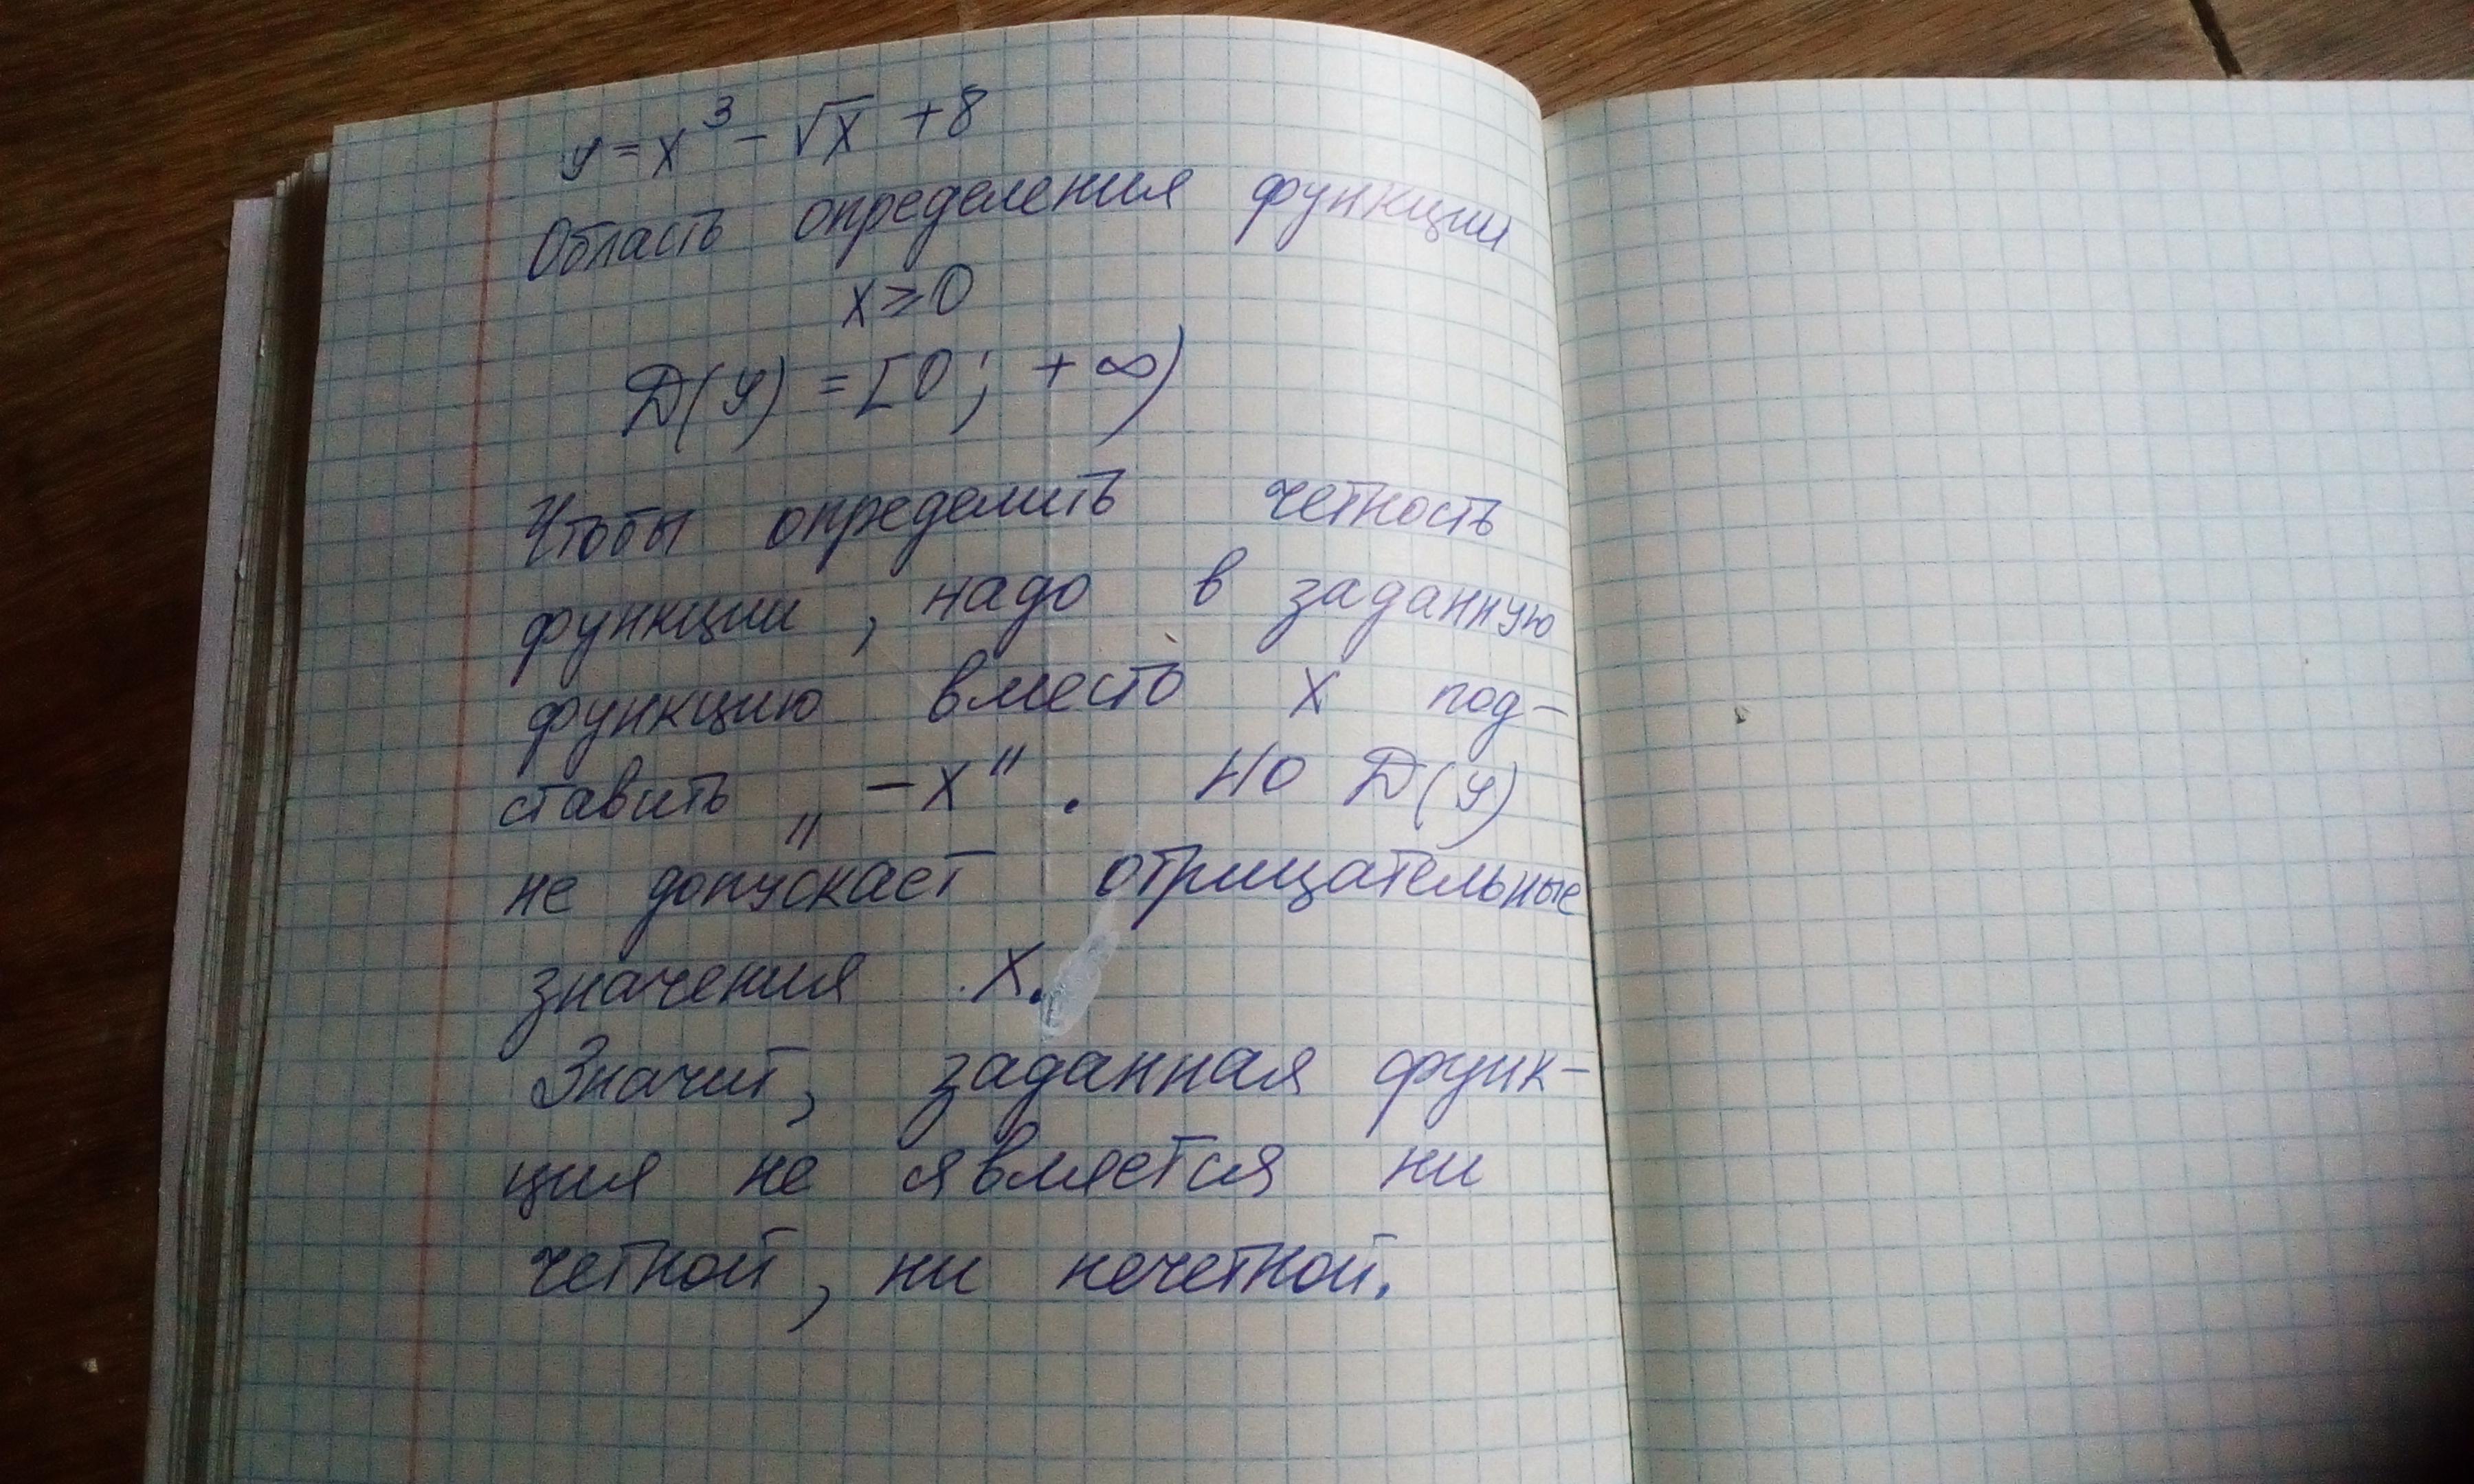 y = x³ - √x + 8
Область определения функции
x ≥ 0
Д(y) = [0; +∞)
Чтобы определить четность
функции, надо в заданную
функцию вместо x под-
ставить „-x". Но Д(y)
не допускает отрицательные
значения x.
Значит, заданная функ-
ция не является ни
четной, ни нечетной.